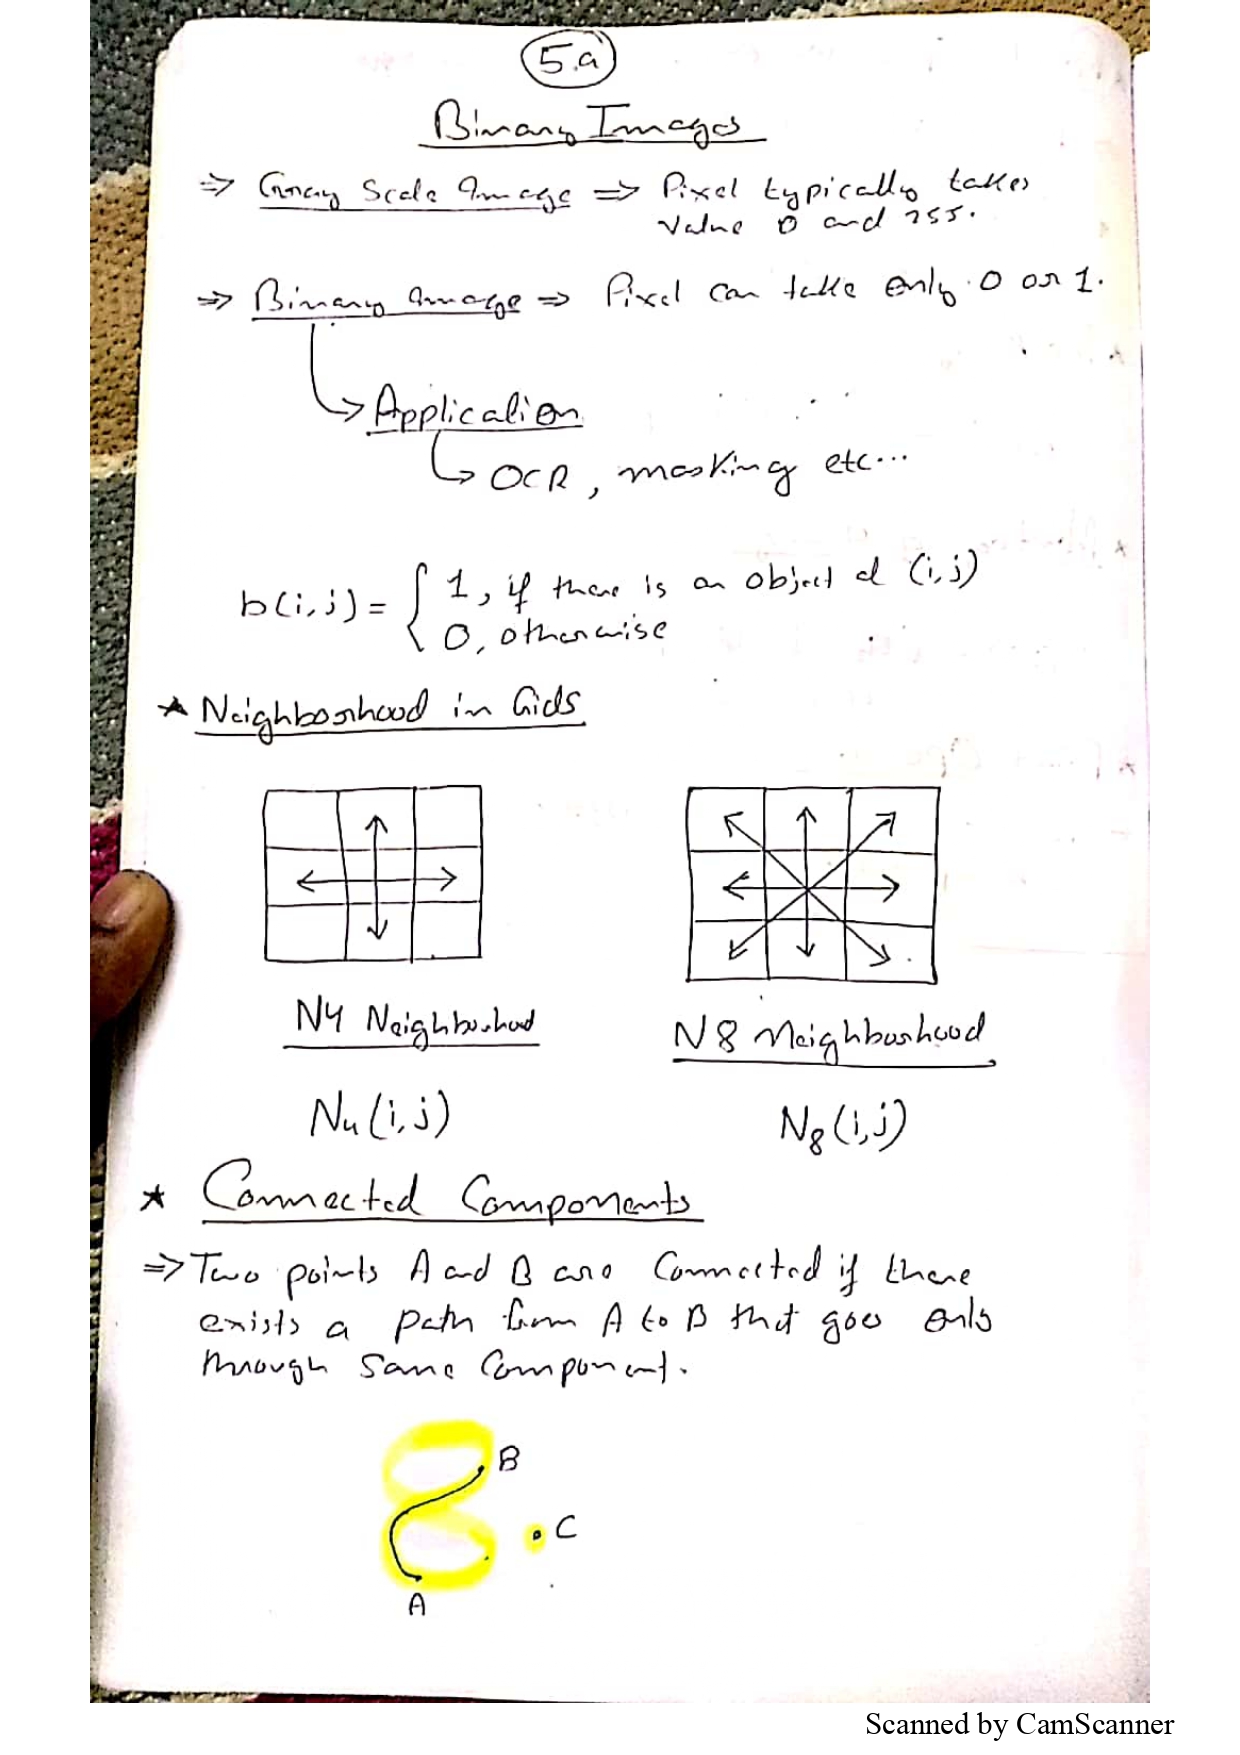 5.a
Binary Images
⇒ Gray Scale Image ⇒ Pixel typically takes
value 0 and 255.
⇒ Binary Image ⇒ Pixel can take only 0 or 1.
Application
OCR, masking etc...
b(i,j) = { 1, if there is an object at (i,j)
0, otherwise
★ Neighborhood in Gids
N4 Neighborhood
N8 Neighborhood
N4(i,j)
N8(i,j)
★ Connected Components
⇒ Two points A and B are Connected if there
exists a path from A to B that goes only
through same Component.
B
C
A
Scanned by CamScanner